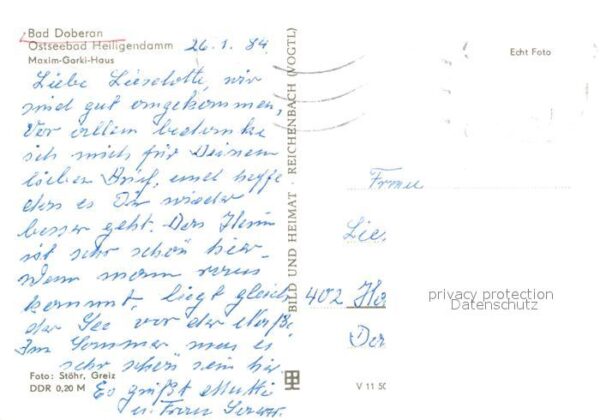 Bad Doberan
Ostseebad Heiligendamm
Maxim-Gorki-Haus
26.1.84.
Liebe Lieselotte, wir
sind gut angekommen,
Vor allem bedanke
ich mich für Deinen
lieben Brief, und hoffe
das es Dir wieder
besser geht. Das Heim
ist sehr schön hier.
Wenn mann raus
kommt, liegt gleich
die See vor der Nase.
Im Sommer mus es
sehr schön sein hier
Es grüßt Mutti
u. Frau
Foto: Stöhr, Greiz
DDR 0,20 M
BILD UND HEIMAT · REICHENBACH (VOGTL)
Echt Foto
Frau
Lie
402 Ha
Der
privacy protection
Datenschutz
V 11 50